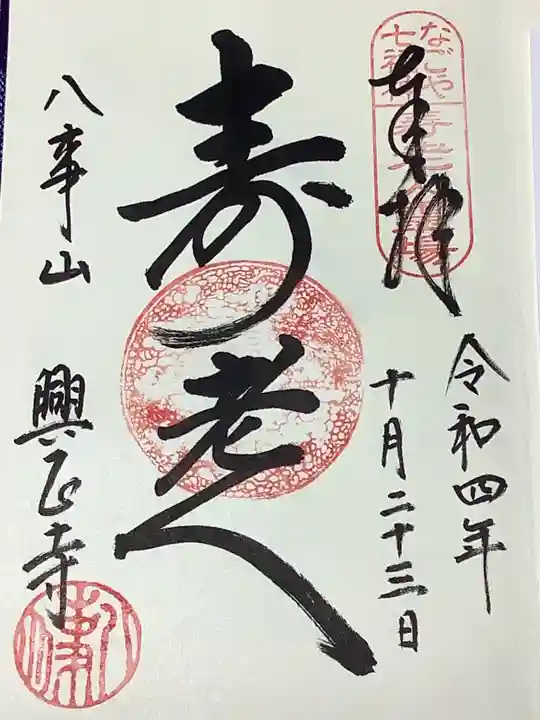 なごや
七福神
寿老人霊場
奉拝
令和四年
十月二十三日
寿老人
八事山
興正寺